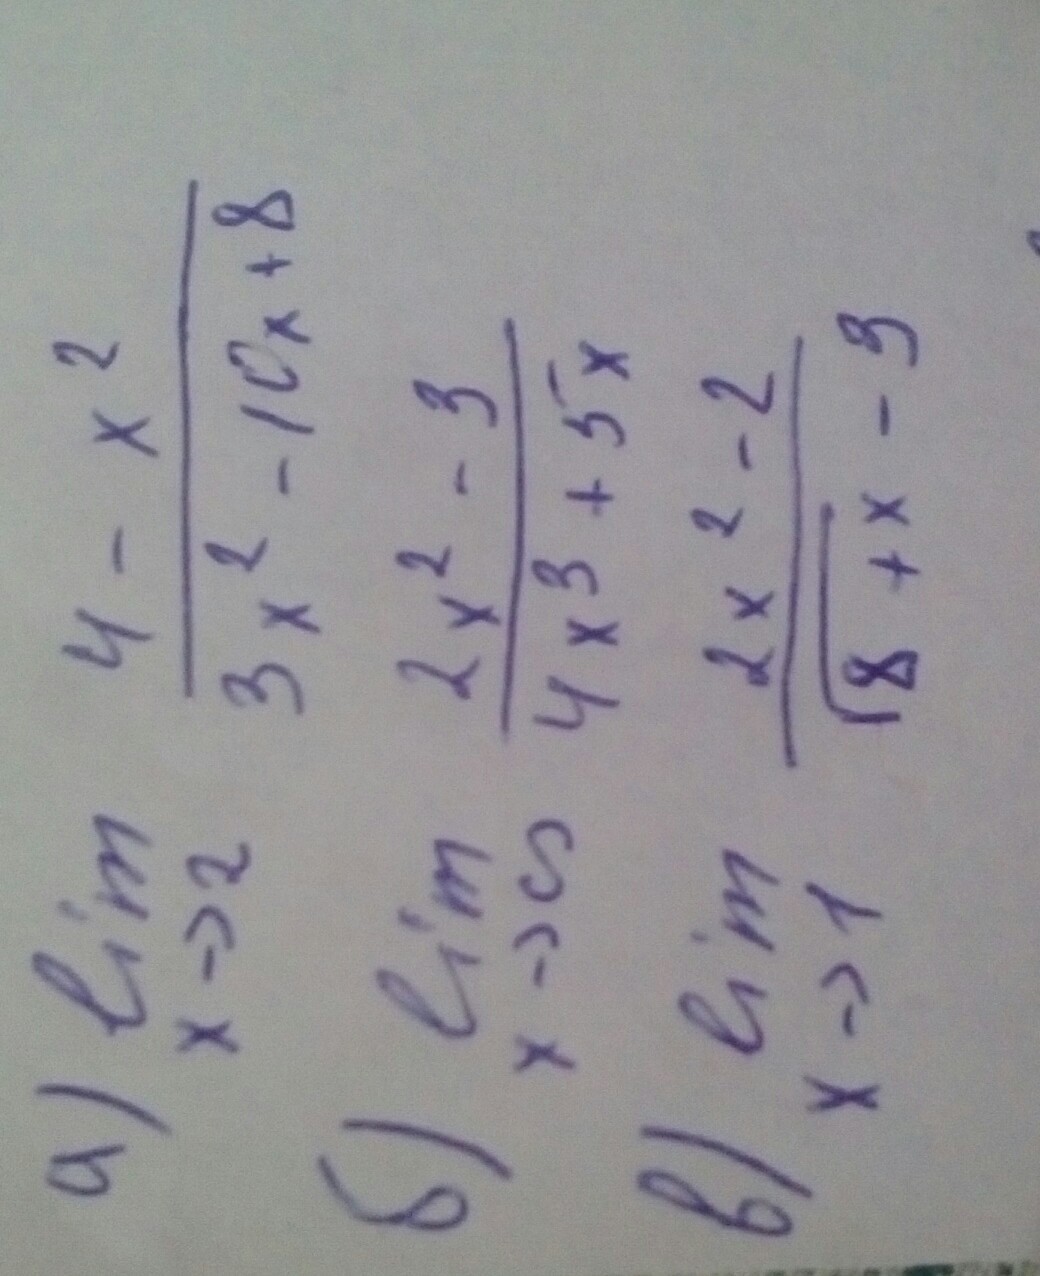 а) lim 4 - x²
x->2 3x² - 10x + 8
б) lim 2x² - 3
x->∞ 4x³ + 5x
в) lim 2x² - 2
x->1 √8 + x - 3